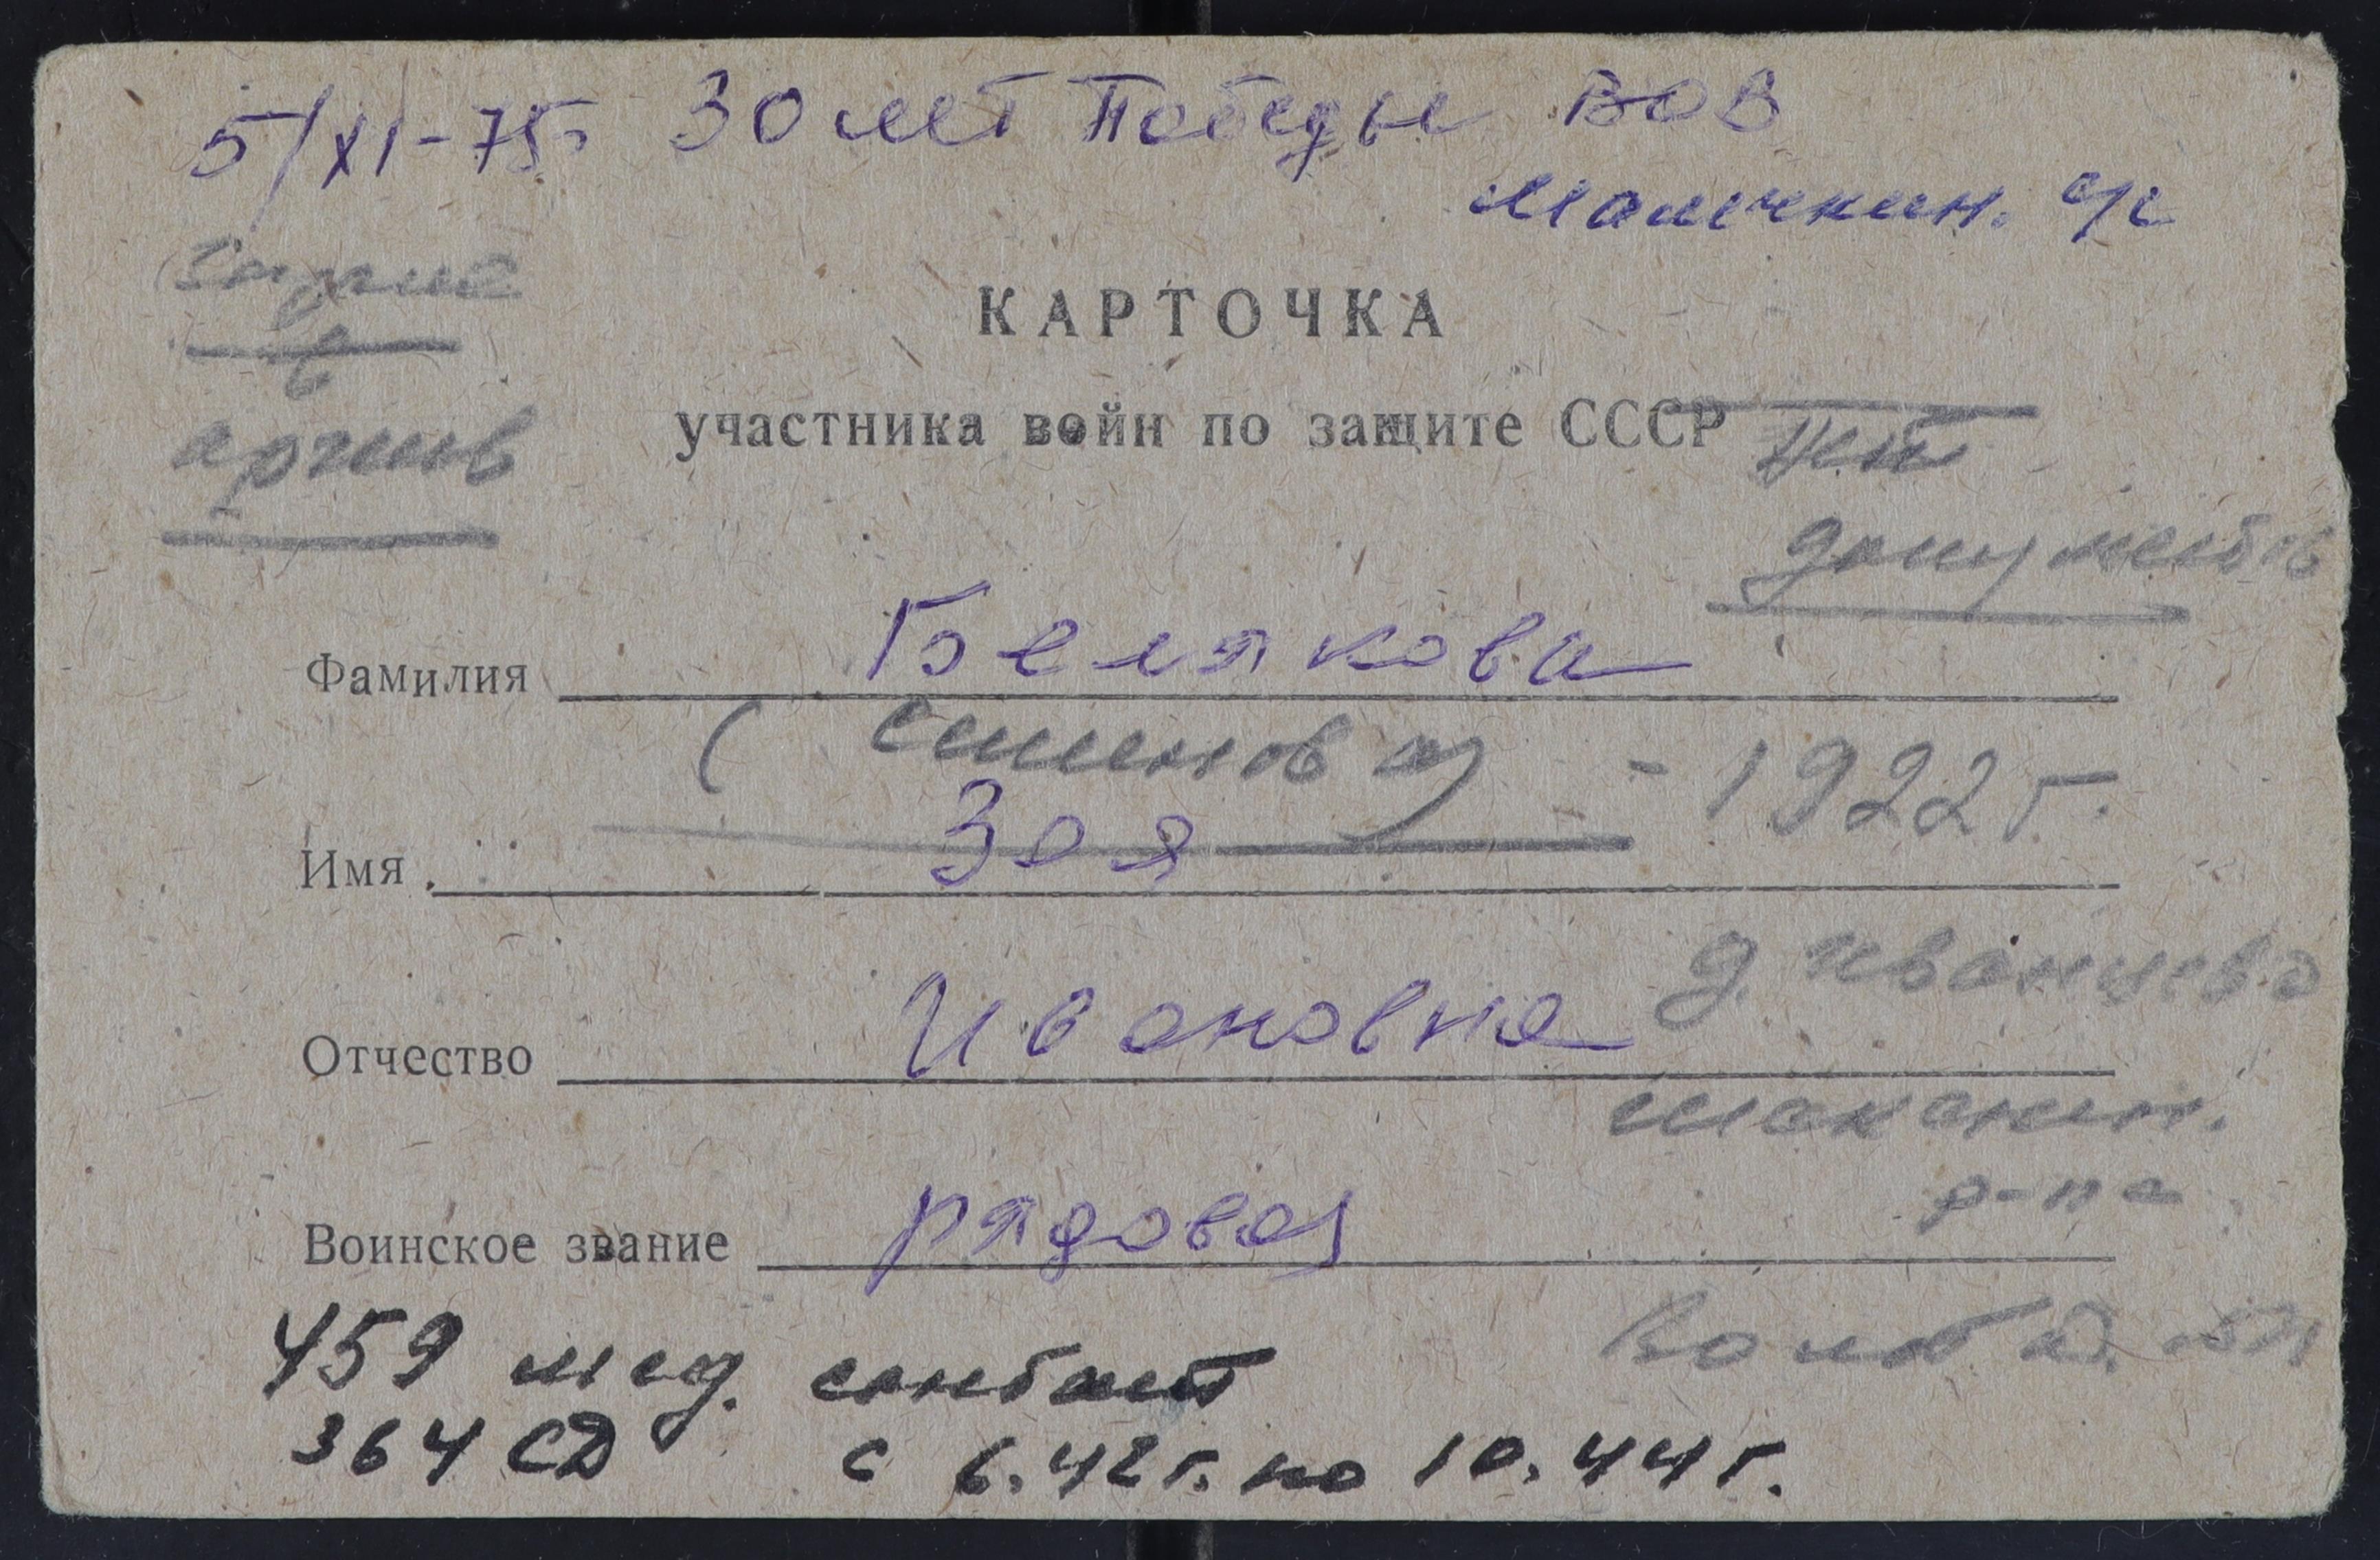 5/XI-75г 30 лет Победы ВОВ
Малечкин. с/с
Запрос
в
архив
КАРТОЧКА
участника войн по защите СССР
Нет
документов
Фамилия Белякова
(Семенова) - 1922 г.
Имя Зоя
д. Иванцево
Отчество Ивановна
р-на
Воинское звание рядовая
459 мед. санбат
364 СД с 6.42 г. по 10.44 г.